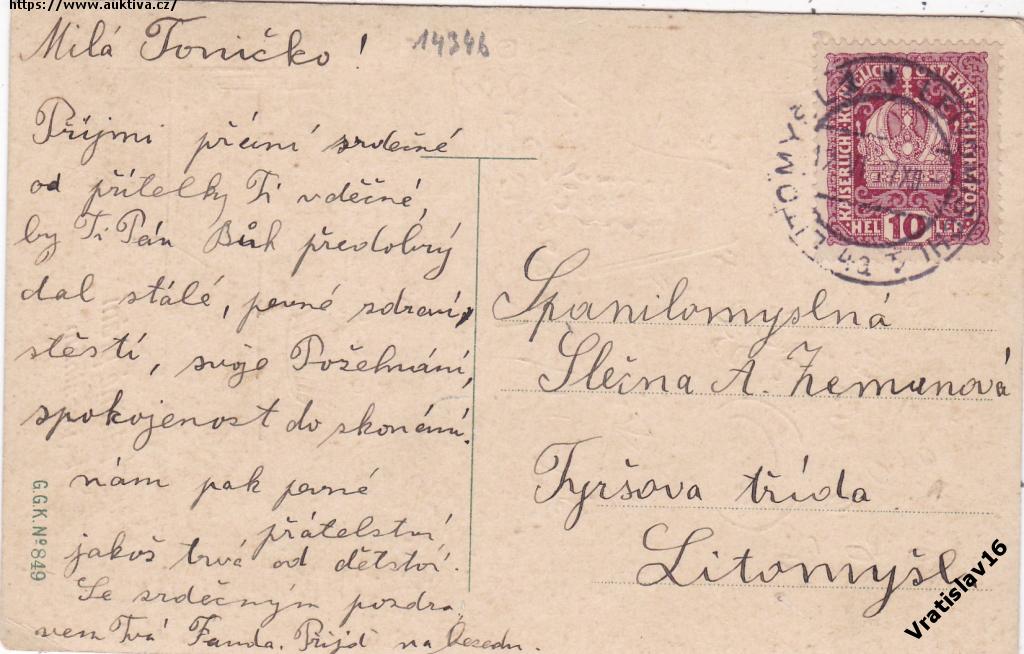 https://www.auktiva.cz/
Milá Toničko!
14346
Přijmi přání srdečné
od přítelky Ti vděčné,
by Ti Pán Bůh předobrý
dal stálé, pevné zdraví,
stěstí, svoje Požehnání,
spokojenost do skonání.
nám pak pevné
přátelství,
jakoš trvá od dětství.
Se srdečným pozdra
vem Tvá Fanda. Přijď na besedu.
G.G.K. Nº 849
KAISERLICH KÖNIGLICH ÖSTERREICHISCHE POST
HEL 10 LER
LITOMYŠL 1
LEITOMISCHL 1
Spanilomyslná
Slečna A. Zemanová
Tyršova třída
Litomyšl
Vratislav16